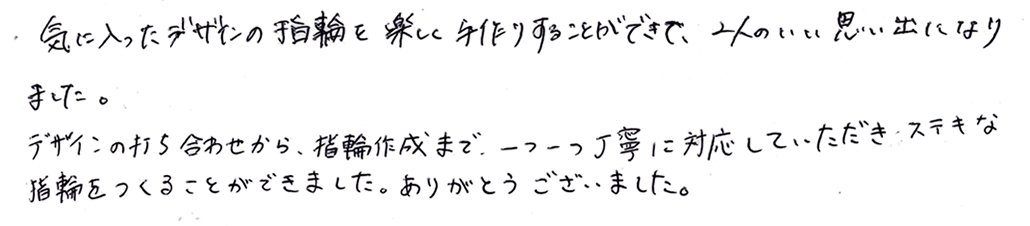 気に入ったデザインの指輪を楽しく手作りすることができて、2人のいい思い出になり
ました。
デザインの打ち合わせから、指輪作成まで、一つ一つ丁寧に対応していただき、ステキな
指輪をつくることができました。ありがとうございました。